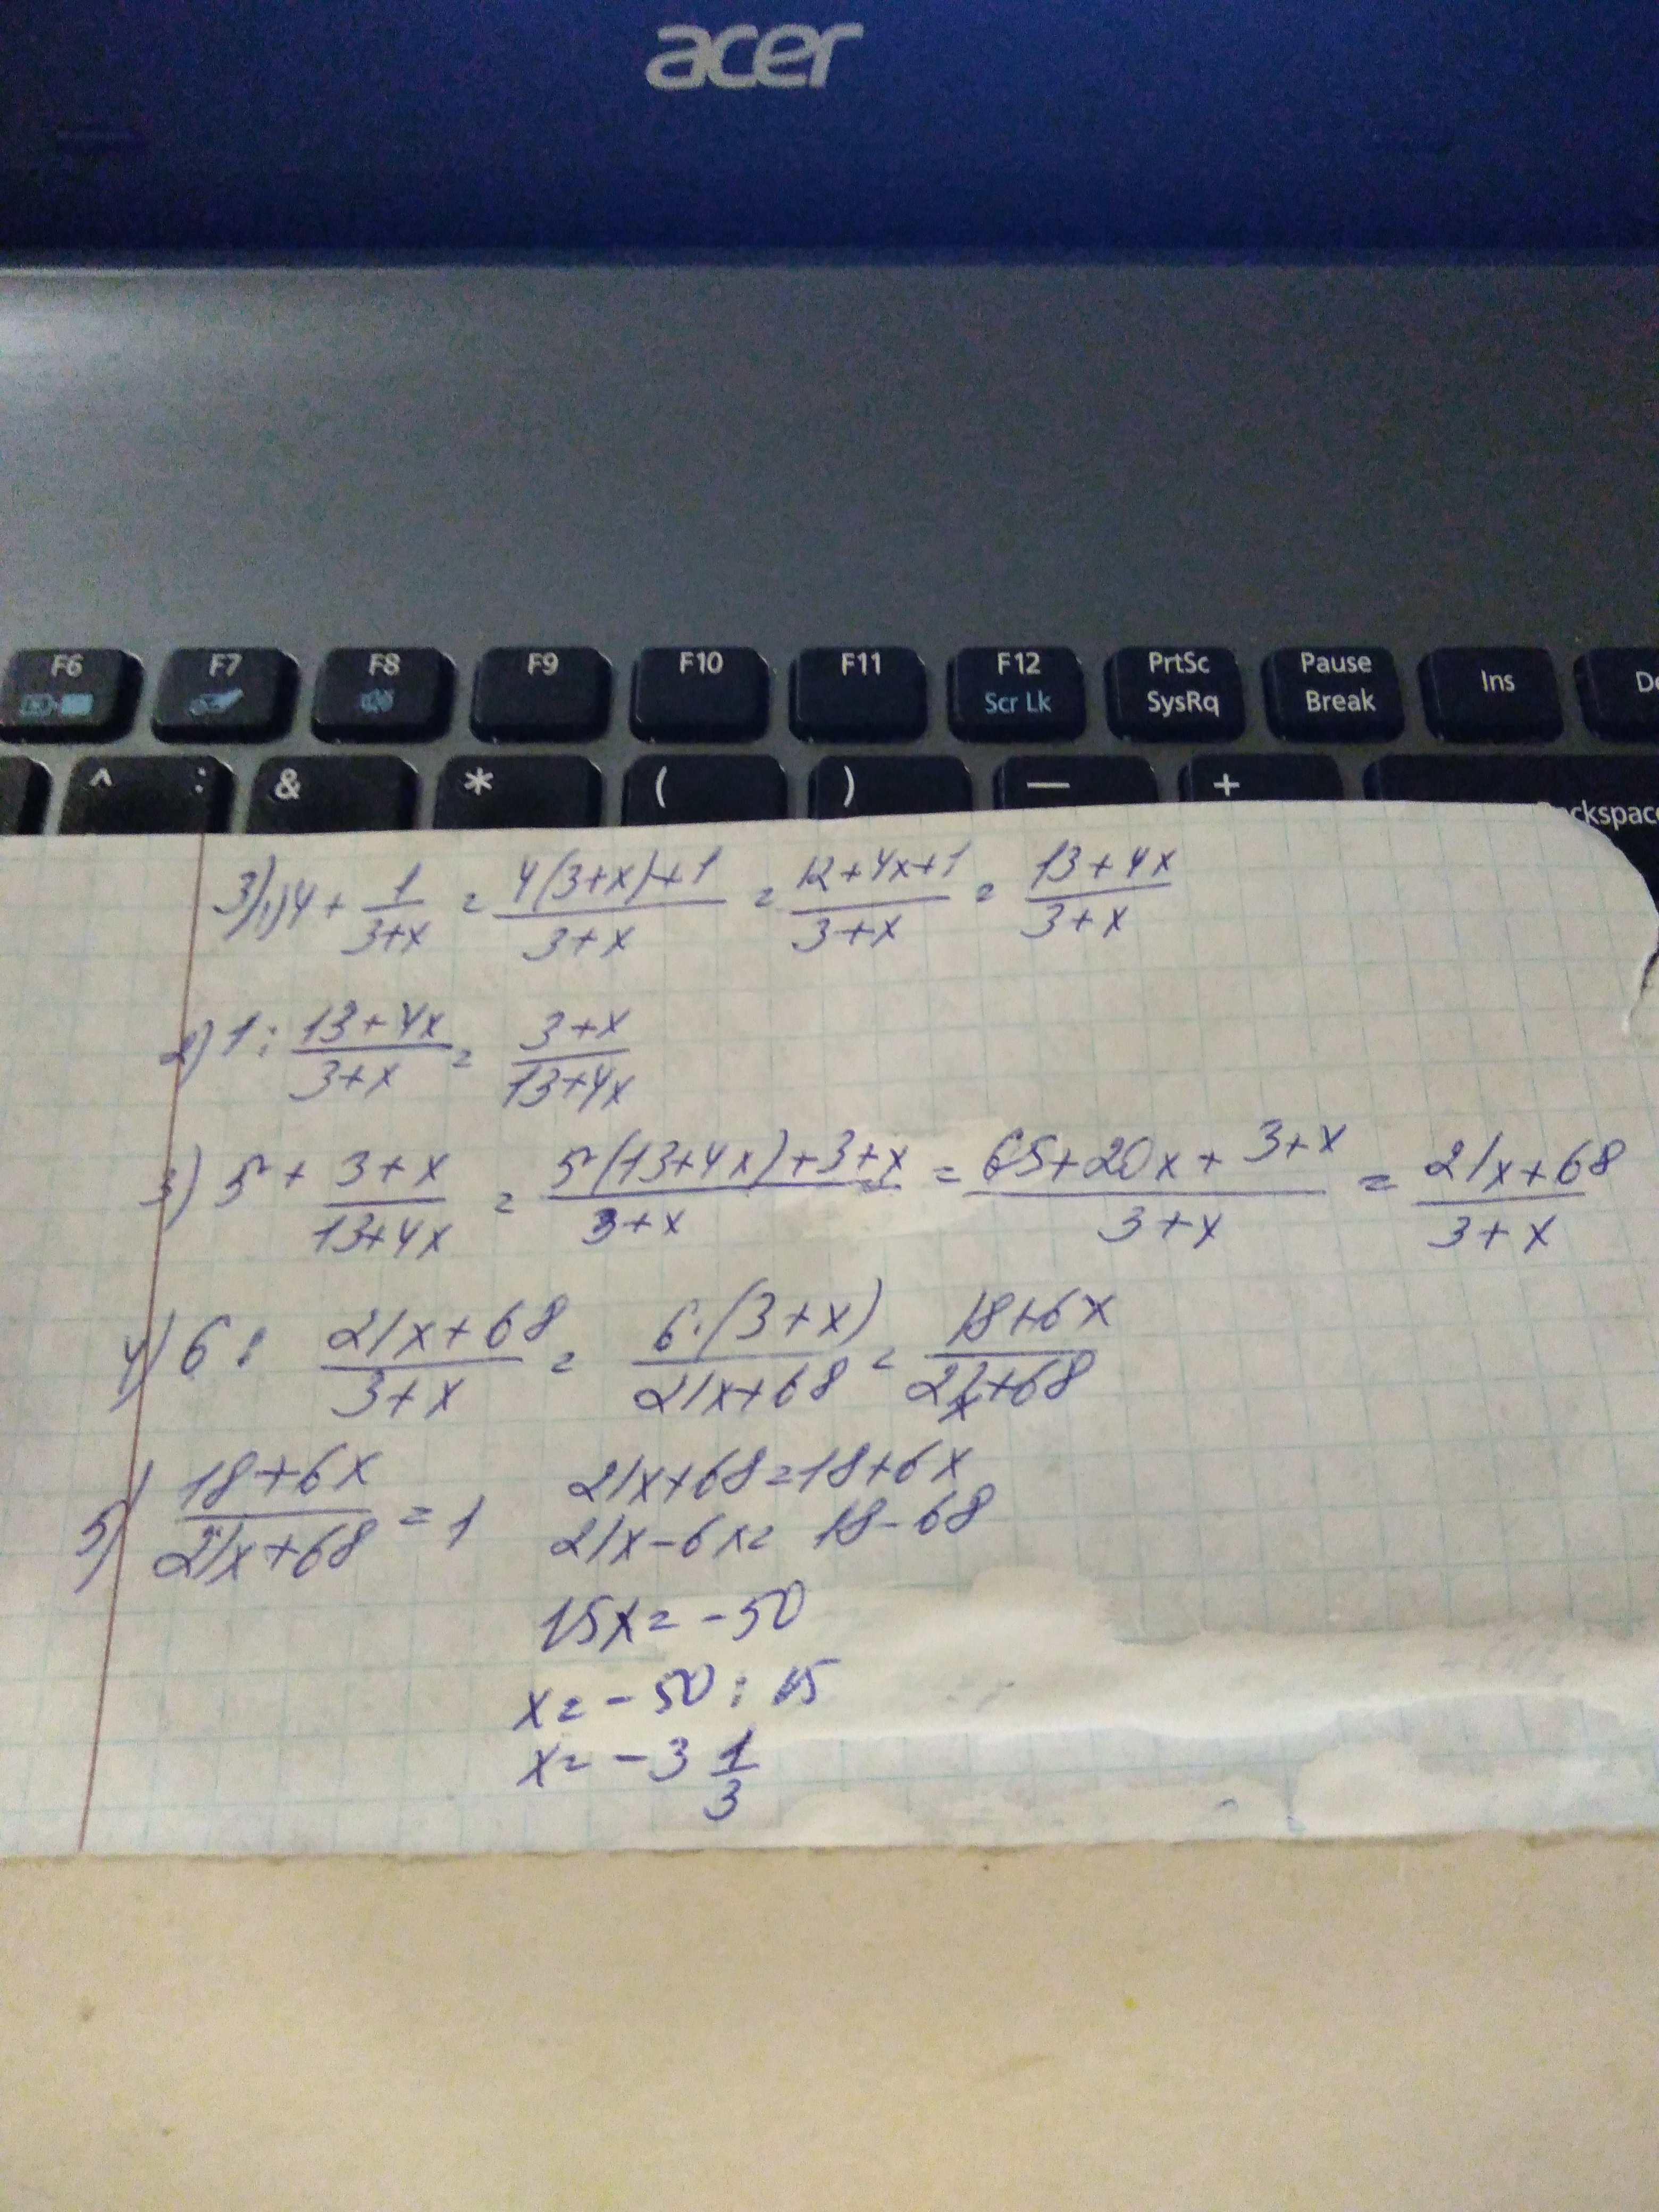 acer
F6 F7 F8 F9 F10 F11 F12 Scr Lk PrtSc SysRq Pause Break Ins
^ : & * ( ) — +
3) 1) 4 + 1/(3+x) = (4(3+x)+1)/(3+x) = (12+4x+1)/(3+x) = (13+4x)/(3+x)
2) 1 : (13+4x)/(3+x) = (3+x)/(13+4x)
3) 5 + (3+x)/(13+4x) = (5(13+4x)+3+x)/(3+x) = (65+20x+3+x)/(3+x) = (21x+68)/(3+x)
4) 6 : (21x+68)/(3+x) = (6·(3+x))/(21x+68) = (18+6x)/(21x+68)
5) (18+6x)/(21x+68) = 1
21x+68=18+6x
21x-6x= 18-68
15x= -50
x= -50 : 15
x= -3 1/3